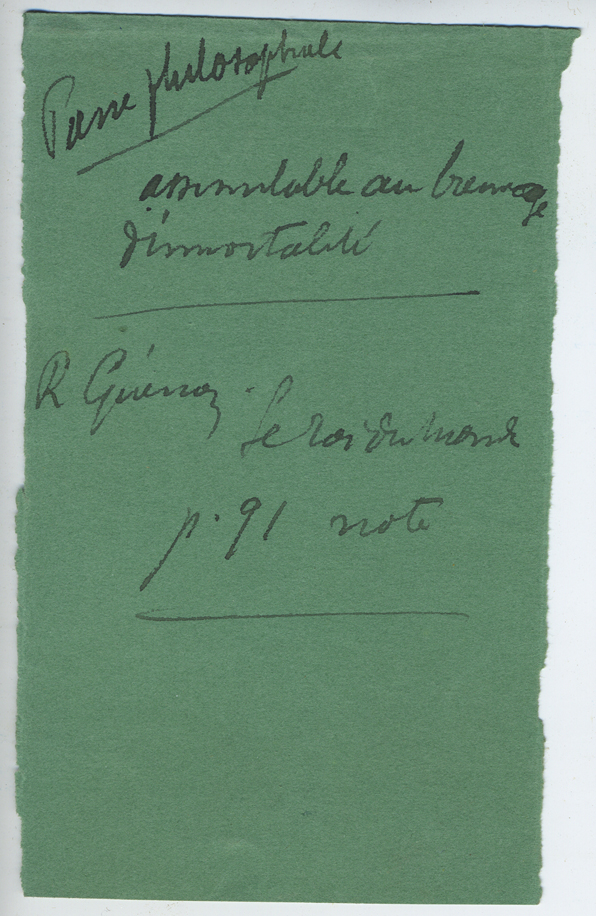 Pierre philosophale
assimilable au breuvage
d'immortalité
R Guénon.
Le roi du monde
p. 91 note